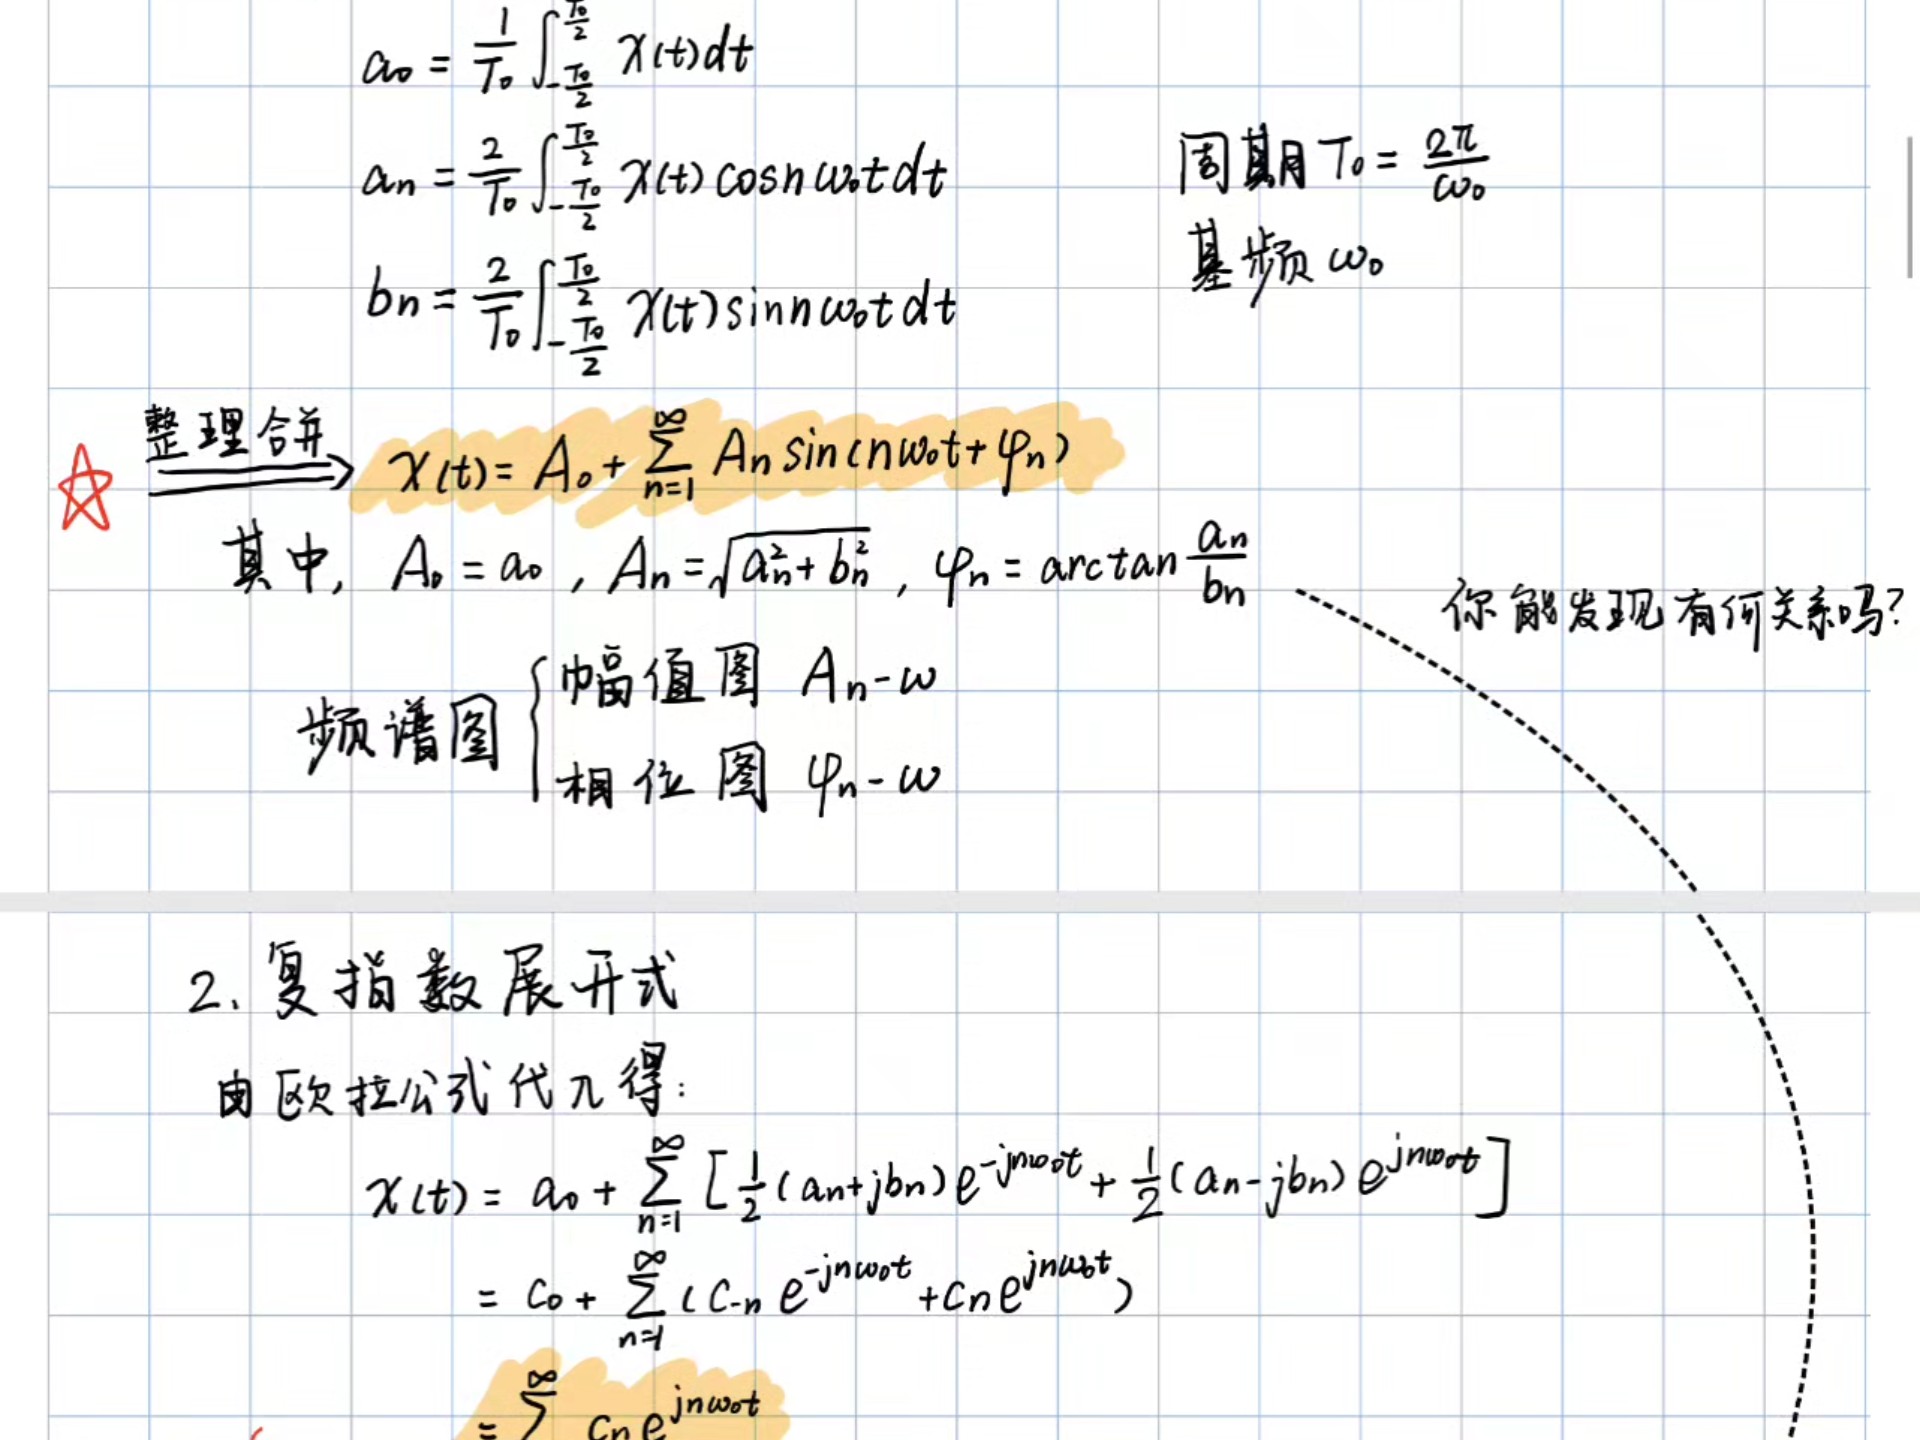 a₀ = 1/T₀ ∫_{-T₀/2}^{T₀/2} x(t)dt
aₙ = 2/T₀ ∫_{-T₀/2}^{T₀/2} x(t)cosnω₀tdt
周期T₀ = 2π/ω₀
bₙ = 2/T₀ ∫_{-T₀/2}^{T₀/2} x(t)sinnω₀tdt
基频ω₀
整理合并
x(t) = A₀ + ∑_{n=1}^{∞} Aₙsin(nω₀t+φₙ)
其中, A₀ = a₀ , Aₙ = √(aₙ²+bₙ²) , φₙ = arctan aₙ/bₙ
你能发现有何关系吗?
频谱图
幅值图 Aₙ-ω
相位图 φₙ-ω
2. 复指数展开式
由欧拉公式代入得:
x(t) = a₀ + ∑_{n=1}^{∞} [½(aₙ+jbₙ)e^{-jnω₀t} + ½(aₙ-jbₙ)e^{jnω₀t}]
= c₀ + ∑_{n=1}^{∞} (c₋ₙe^{-jnω₀t} + cₙe^{jnω₀t})
= ∑^{∞} cₙe^{jnω₀t}